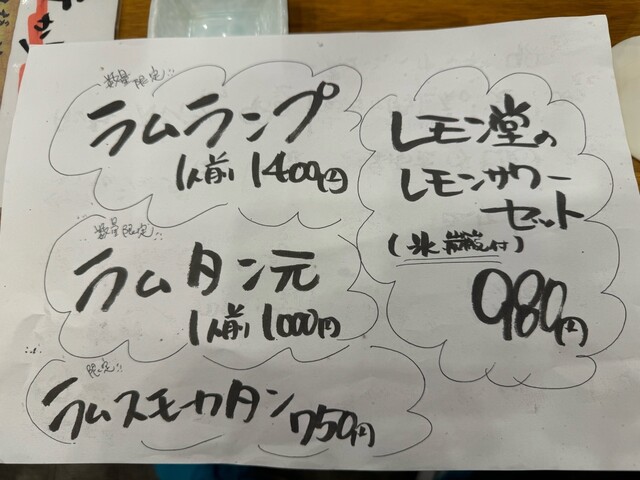 数量限定!!
ラムランプ
1人前 1400円
数量限定!!
ラムタン元
1人前 1000円
限定!!
ラムスモークタン 750円
レモン堂の
レモンサワー
セット
(氷 付)
980円